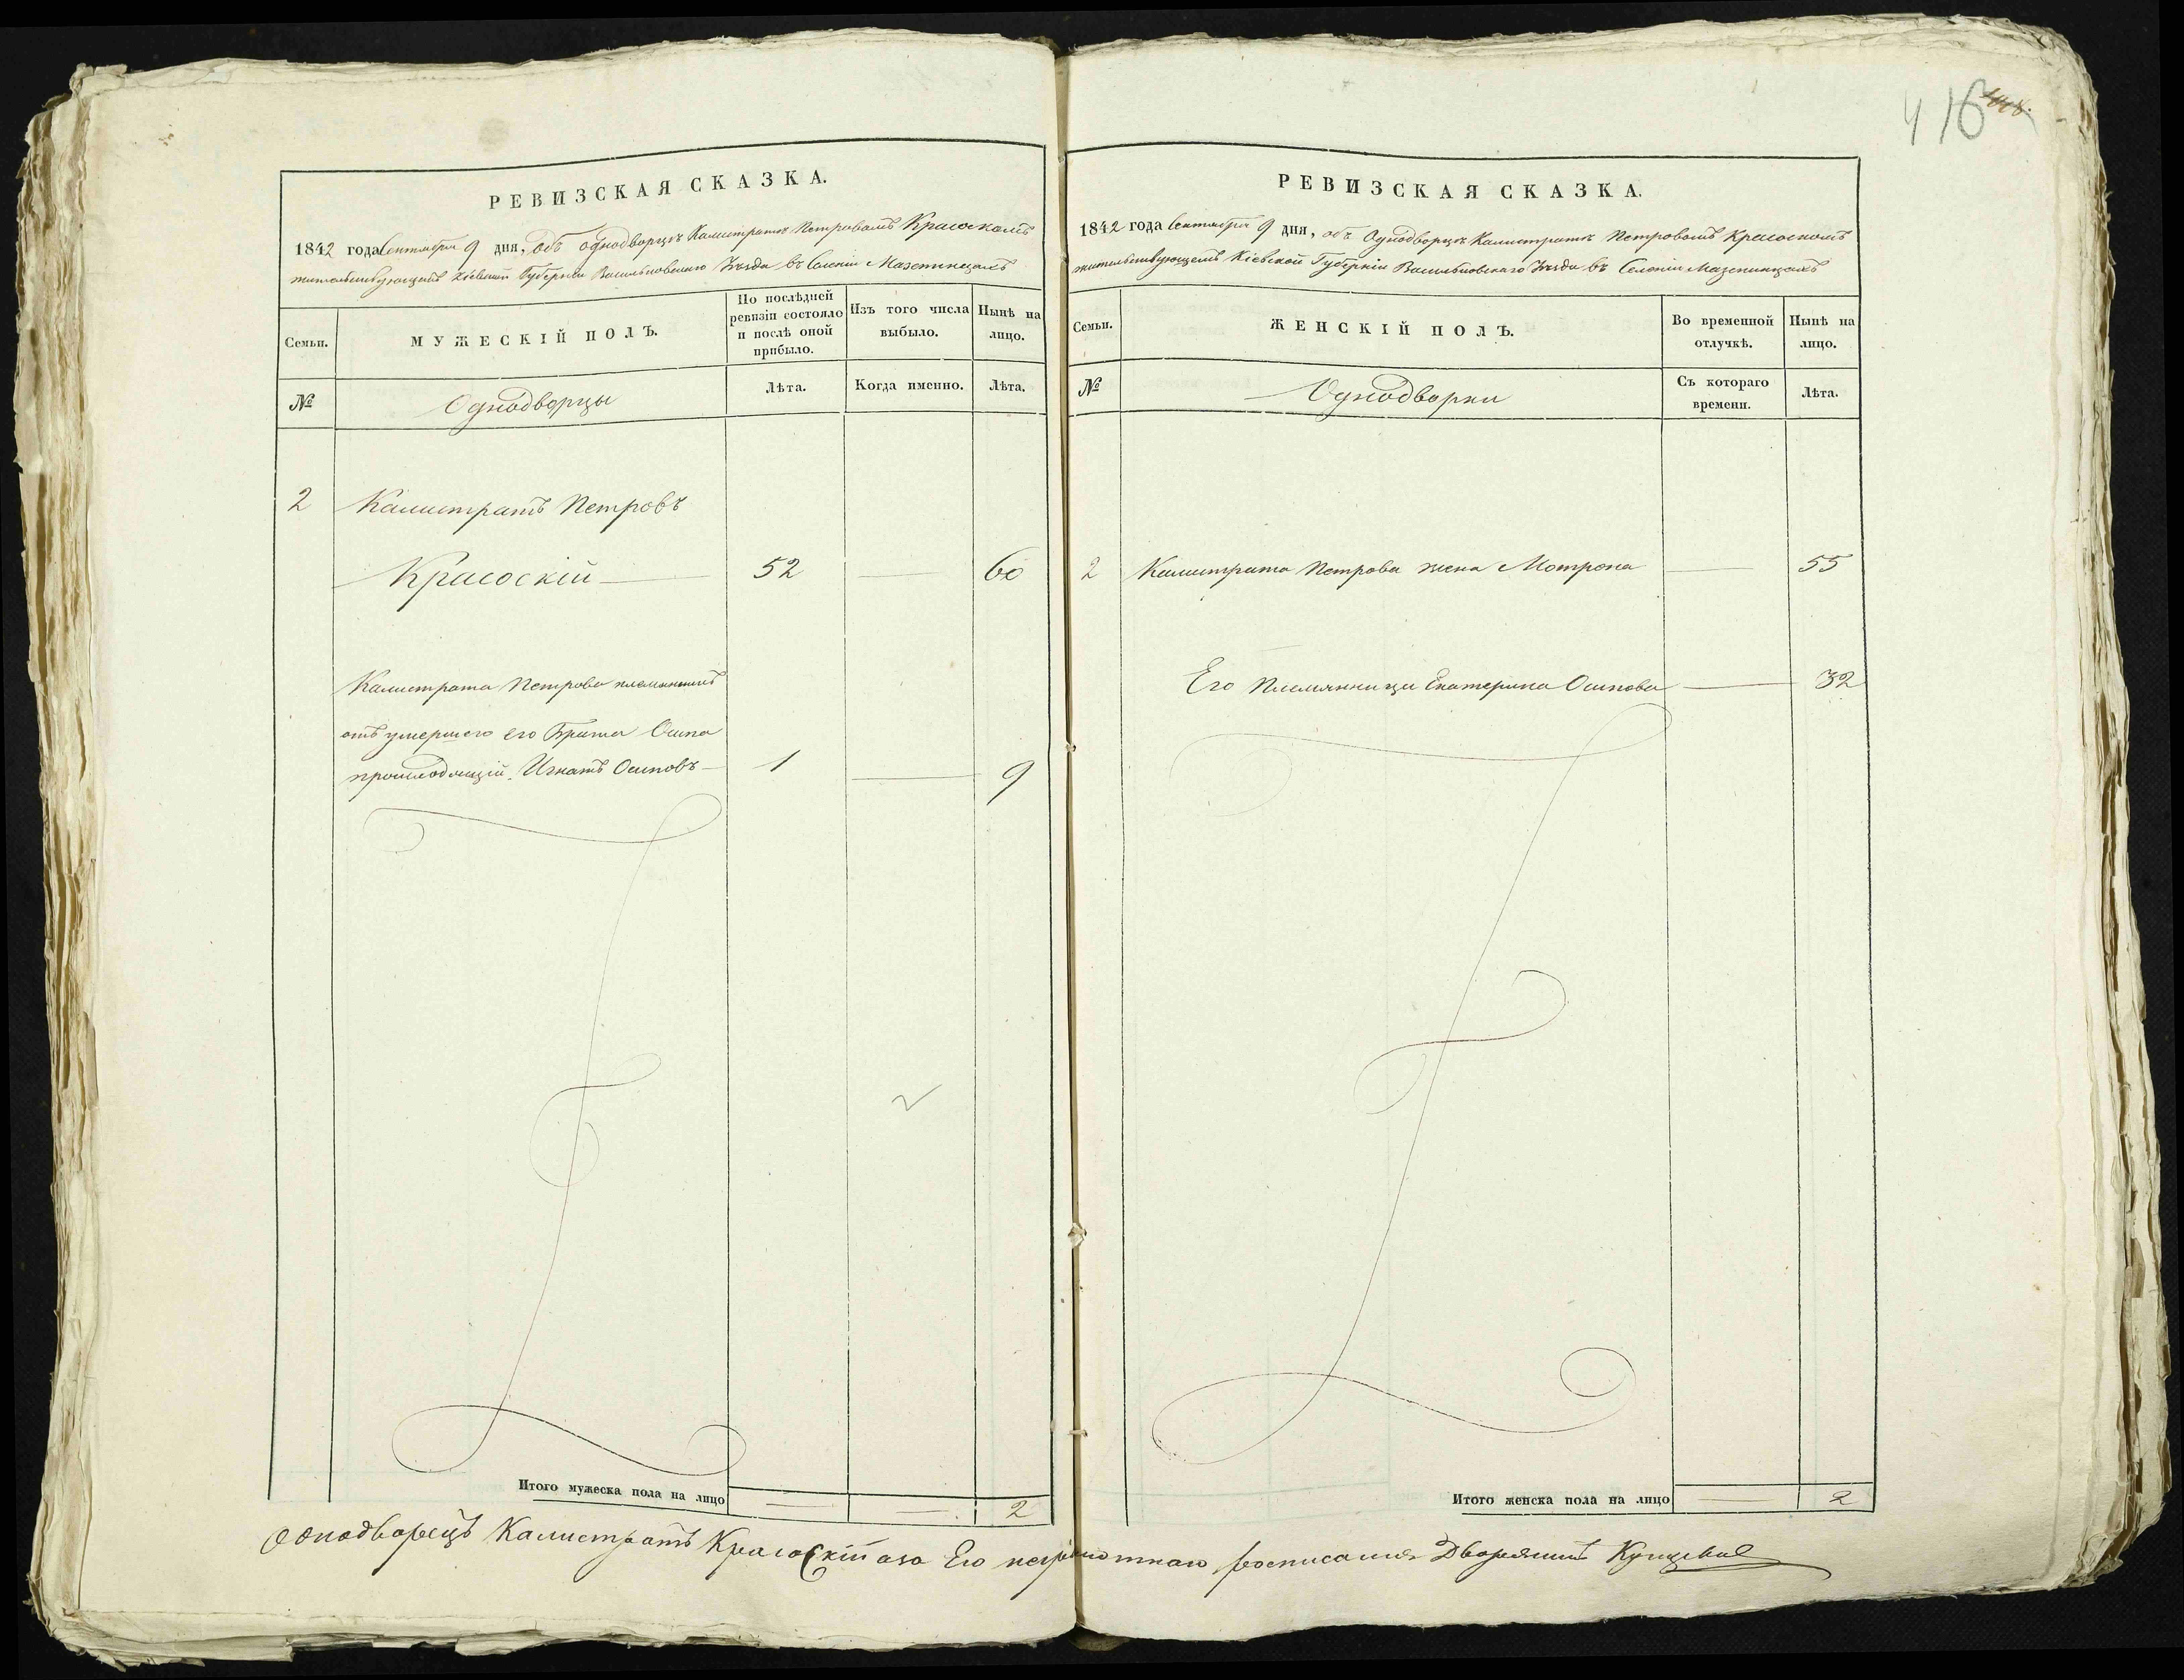 416
РЕВИЗСКАЯ СКАЗКА.
1842 года Сентября 9 дня, объ однодворцѣ Калистратѣ Петровомъ Красоскомъ
жительствующемъ Кіевской Губерніи Васильковскаго Уѣзда въ Селеніи Мазепинцахъ
Семьи.
МУЖЕСКІЙ ПОЛЪ.
По послѣдней ревизіи состояло и послѣ оной прибыло.
Изъ того числа выбыло.
Нынѣ на лицо.
№
Однодворцы
Лѣта.
Когда именно.
Лѣта.
2 Калистратъ Петровъ
Красоскій — 52 — 60
Калистрата Петрова племянникъ
отъ умершего его Брата Осипа
происходящій Игнатъ Осиповъ — 1 — 9
Итого мужеска пола на лицо — — 2
РЕВИЗСКАЯ СКАЗКА.
1842 года Сентября 9 дня, объ Однодворцѣ Калистратѣ Петровомъ Красоскомъ
жительствующемъ Кіевской Губерніи Васильковскаго Уѣзда въ Селеніи Мазепинцахъ
Семьи.
ЖЕНСКІЙ ПОЛЪ.
Во временной отлучкѣ.
Нынѣ на лицо.
№
Однодворки
Съ котораго времени.
Лѣта.
2 Калистрата Петрова жена Мотрона — 55
Его Племянница Екатерина Осипова — 32
Итого женска пола на лицо — 2
Однодворецъ Калистратъ Красоскій аза Его неграмотнаго росписался Дворянинъ